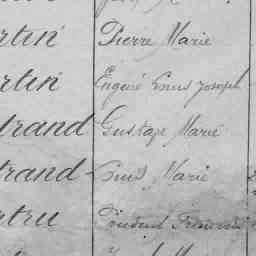 rtin Pierre Marie
rtin Eugène Louis Joseph
trand Gustave Marie
trand Louis Marie
rtru Prudent